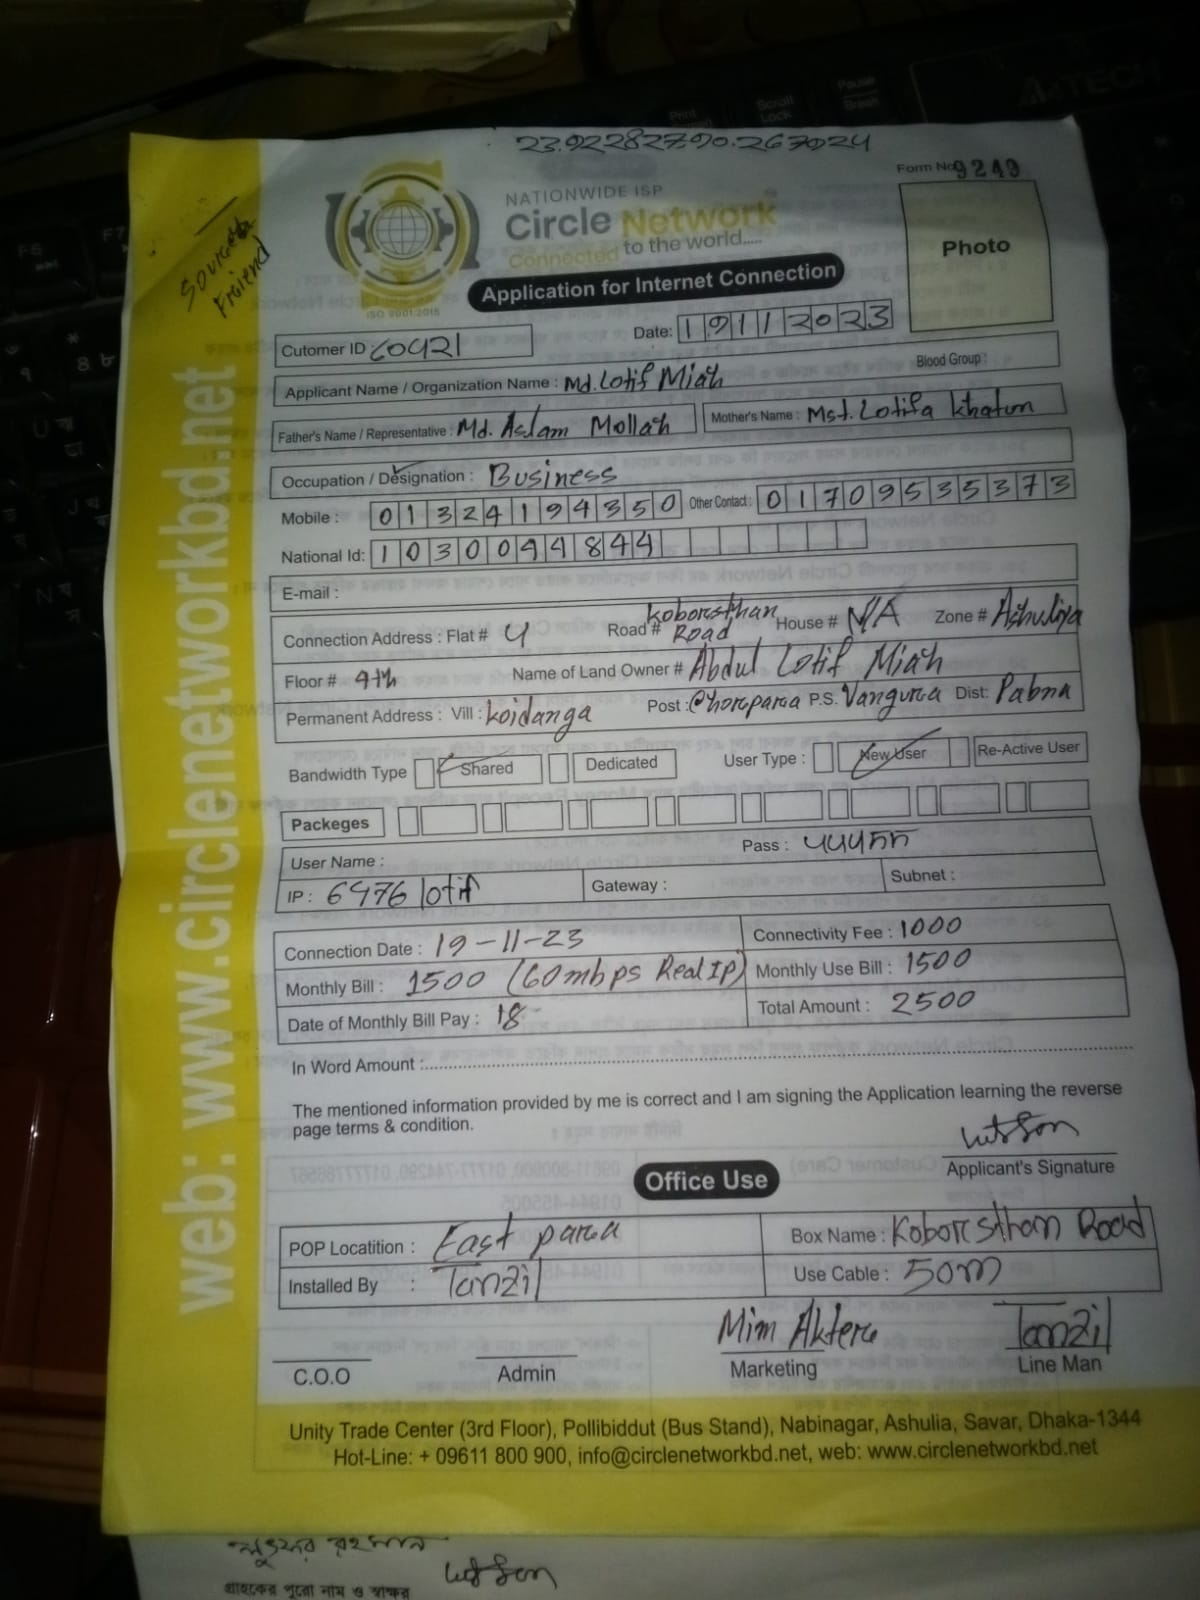 23.922827,90.267024
Form No 9249
Source:
Freiend
NATIONWIDE ISP
Circle Network
Connected to the world.....
ISO 9001:2015
Application for Internet Connection
Photo
Cutomer ID : 60421
Date: 19112023
Blood Group :
Applicant Name / Organization Name : Md. Lotif Miah
Father's Name / Representative : Md. Aslam Mollah Mother's Name : Mst. Lotifa Khatun
Occupation / Designation : Business
Mobile : 01324194350 Other Contact : 01709535373
National Id: 1030094844
E-mail :
Connection Address : Flat # 4 Road # Koborsthan Road House # N/A Zone # Ashuliya
Floor # 4th Name of Land Owner # Abdul Lotif Miah
Permanent Address : Vill : Koidanga Post : P.S. Vangura Dist: Pabna
Bandwidth Type Shared Dedicated User Type : New User Re-Active User
Packeges
User Name : Pass : 445577
IP : 6476 lotif Gateway : Subnet :
Connection Date : 19-11-23 Connectivity Fee : 1000
Monthly Bill : 1500 (60mbps Real IP) Monthly Use Bill : 1500
Date of Monthly Bill Pay : 18 Total Amount : 2500
In Word Amount :
The mentioned information provided by me is correct and I am signing the Application learning the reverse
page terms & condition.
Applicant's Signature
Office Use
POP Locatition : East para Box Name : Koborsthan Road
Installed By : Tanzil Use Cable : 50m
Mim Akter Tanzil
C.O.O Admin Marketing Line Man
Unity Trade Center (3rd Floor), Pollibiddut (Bus Stand), Nabinagar, Ashulia, Savar, Dhaka-1344
Hot-Line: + 09611 800 900, info@circlenetworkbd.net, web: www.circlenetworkbd.net
web: www.circlenetworkbd.net
গ্রাহকের পুরো নাম ও স্বাক্ষর